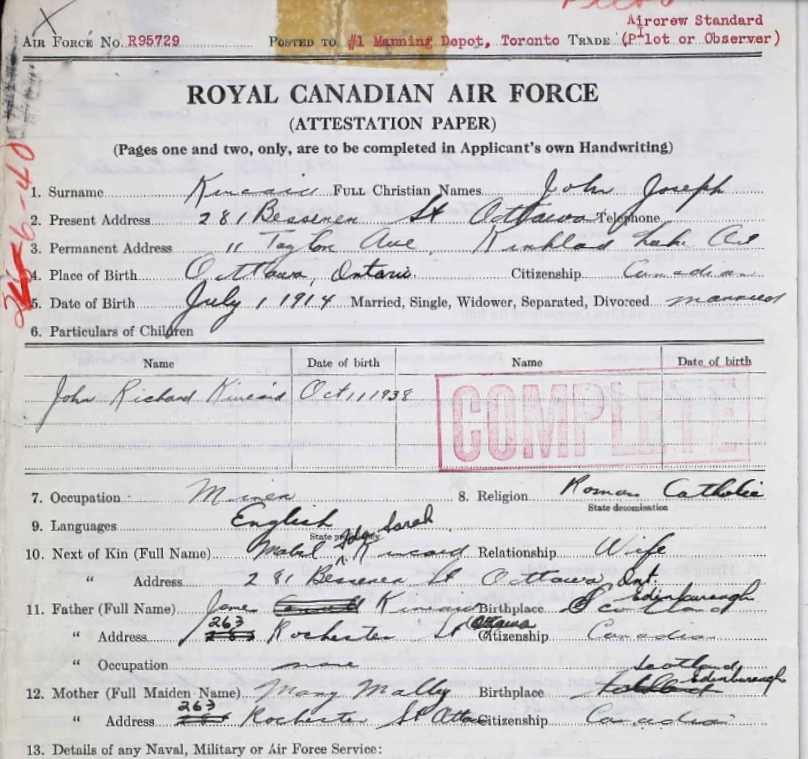 Aircrew Standard
AIR FORCE NO. R95729 POSTED TO #1 Manning Depot, Toronto TRADE (Pilot or Observer)
ROYAL CANADIAN AIR FORCE
(ATTESTATION PAPER)
(Pages one and two, only, are to be completed in Applicant's own Handwriting)
1. Surname Kincaid FULL Christian Names John Joseph
2. Present Address 281 Besserer St Ottawa Telephone
3. Permanent Address 11 Taylor Ave, Kirkland Lake
4. Place of Birth Ottawa, Ontario Citizenship Canadian
5. Date of Birth July 1 1914 Married, Single, Widower, Separated, Divorced married
6. Particulars of Children
Name Date of birth Name Date of birth
John Richard Kincaid Oct 11 1938
COMPLETE
7. Occupation Miner 8. Religion Roman Catholic
State denomination
9. Languages English
Sarah
10. Next of Kin (Full Name) Mabel Kincaid Relationship Wife
" Address 281 Besserer St Ottawa, Ont.
Edinburaugh
11. Father (Full Name) Kincaid Birthplace Scotland
263 Ottawa
" Address Rochester St Citizenship Canadian
" Occupation none
Scotland Edinburaugh
12. Mother (Full Maiden Name) Mary Malley Birthplace
263
" Address Rochester St Ottawa Citizenship Canadian
13. Details of any Naval, Military or Air Force Service: